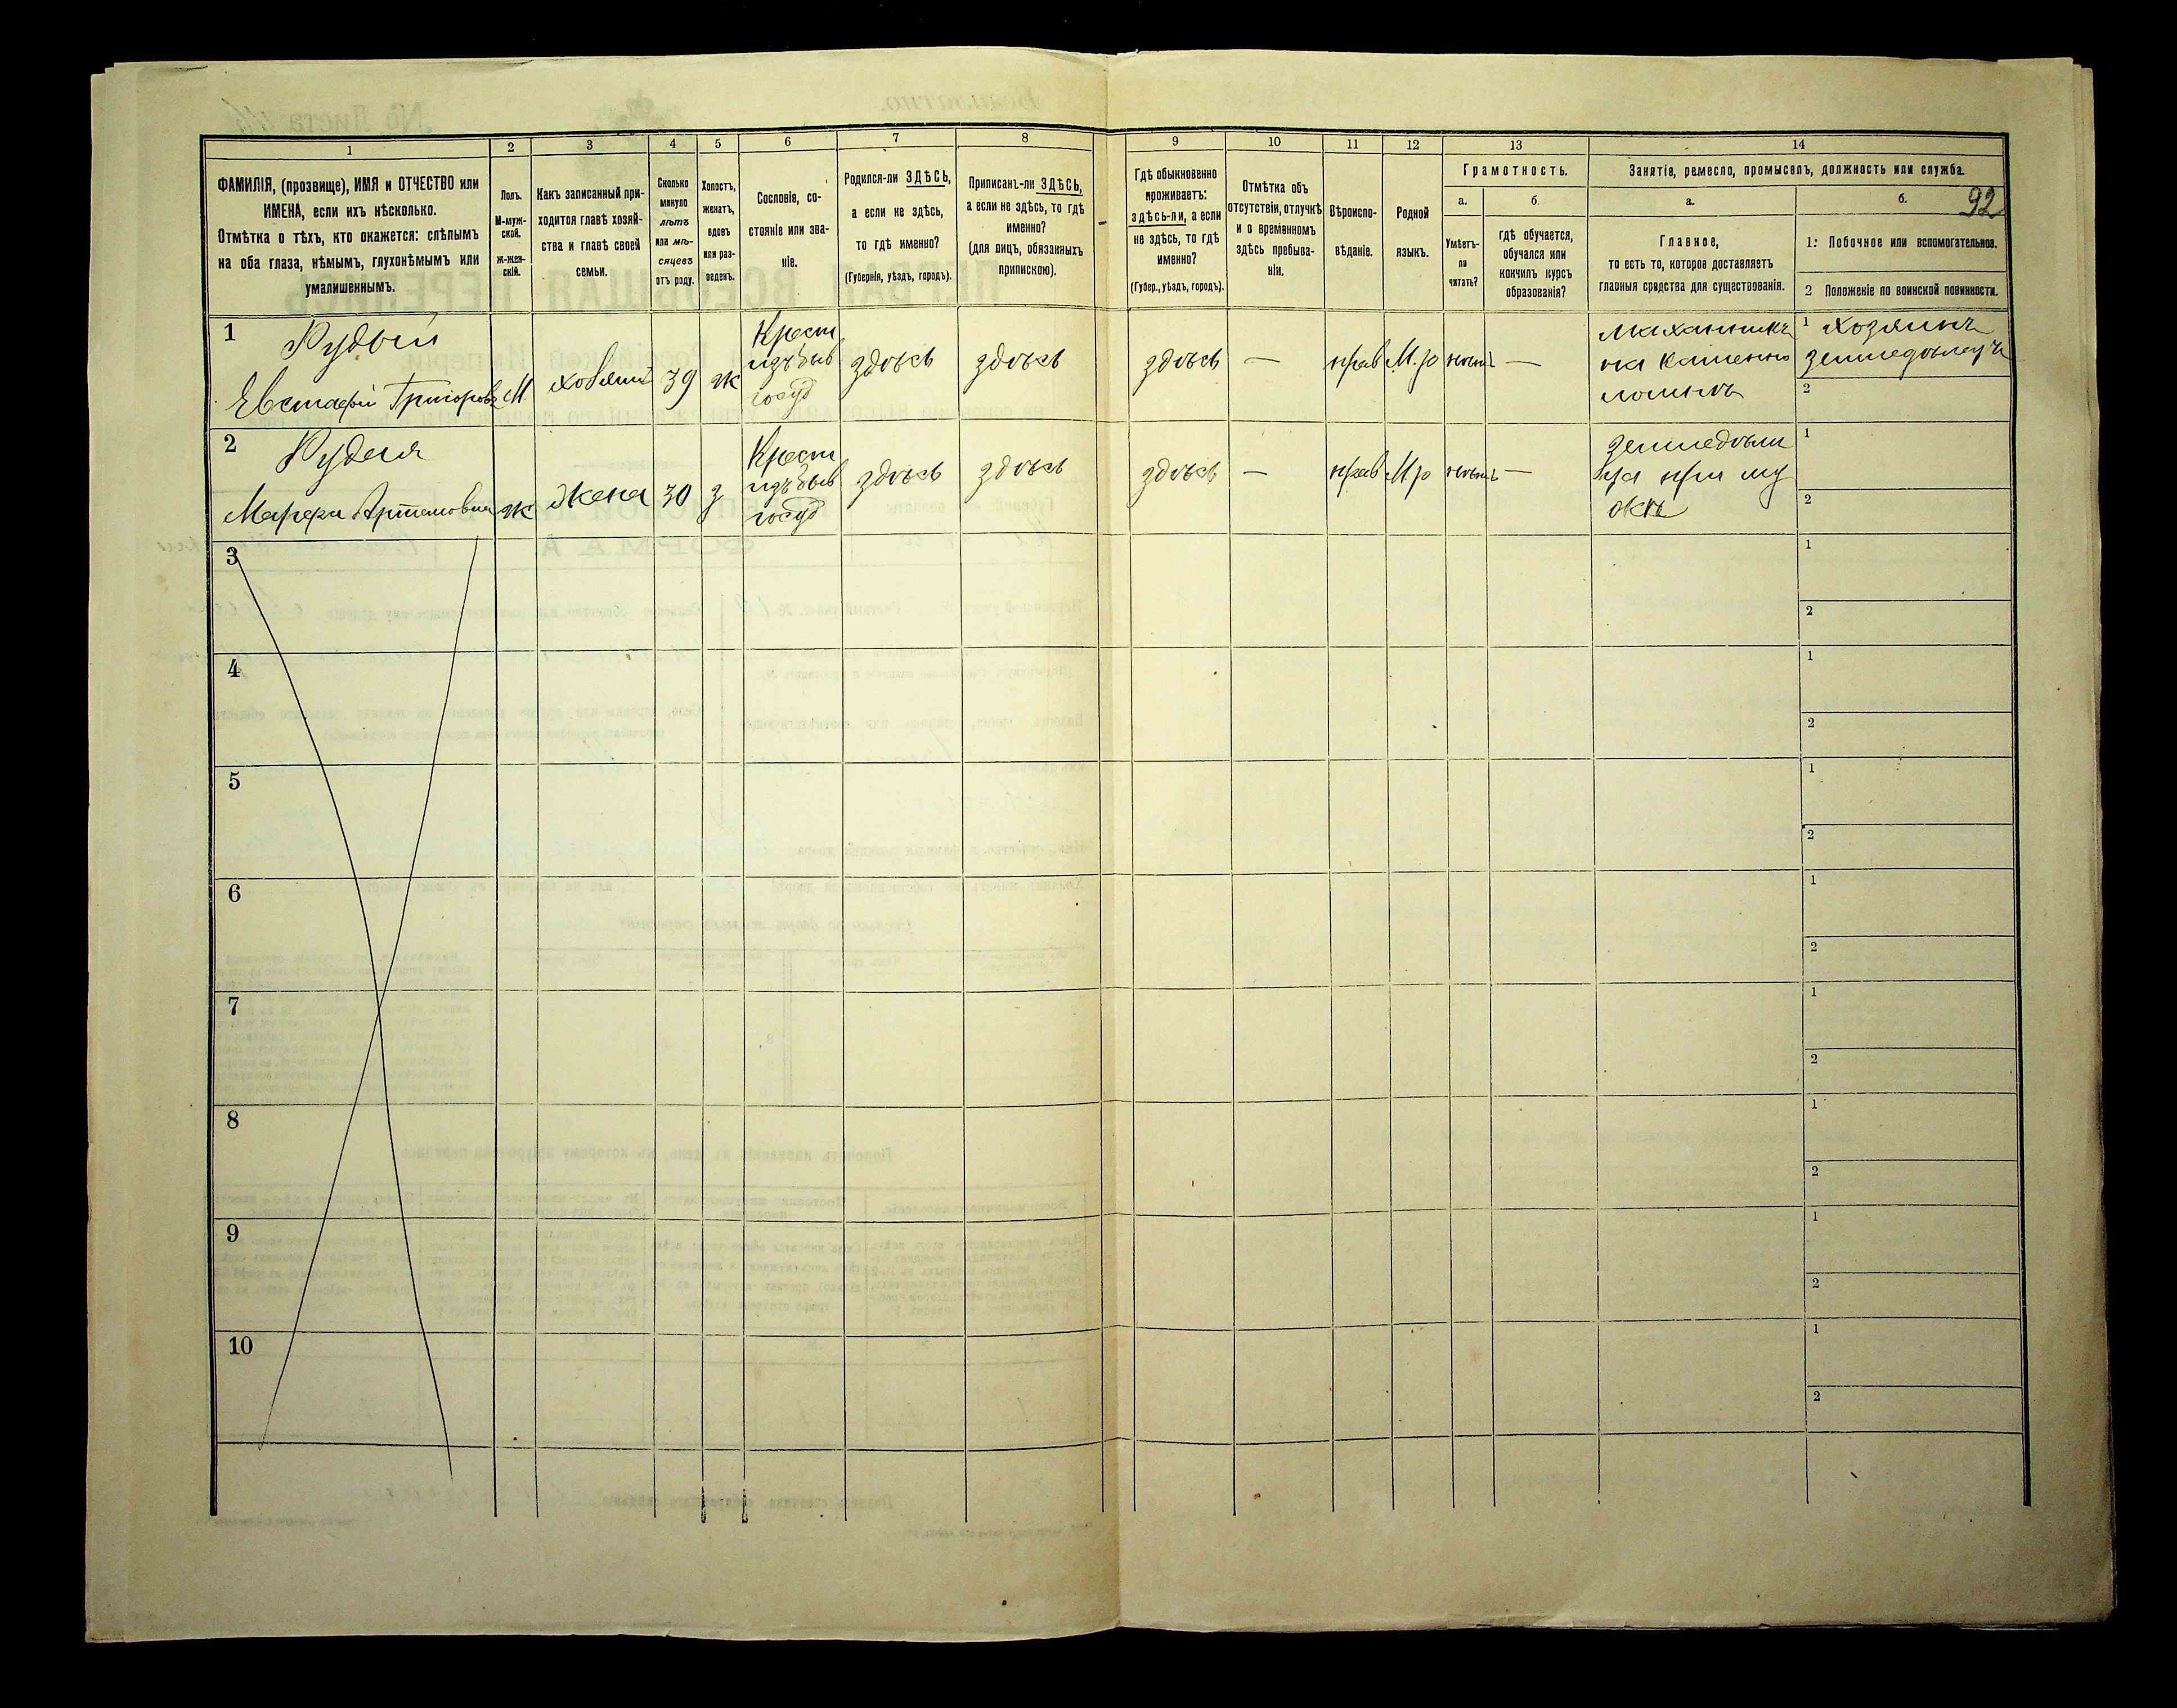 1 2 3 4 5 6 7 8 9 10 11 12 13 14
ФАМИЛІЯ, (прозвище), ИМЯ и ОТЧЕСТВО или
ИМЕНА, если ихъ нѣсколько.
Отмѣтка о тѣхъ, кто окажется: слѣпымъ
на оба глаза, нѣмымъ, глухонѣмымъ или
умалишеннымъ.
Полъ.
М-муж-
ской.
Ж-жен-
скій.
Какъ записанный при-
ходится главѣ хозяй-
ства и главѣ своей
семьи.
Сколько
минуло
лѣтъ
или мѣ-
сяцевъ
отъ роду.
Холостъ,
женатъ,
вдовъ
или раз-
веденъ.
Сословіе, со-
стояніе или зва-
ніе.
Родился-ли ЗДѢСЬ,
а если не здѣсь,
то гдѣ именно?
(Губернія, уѣздъ, городъ).
Приписанъ-ли ЗДѢСЬ,
а если не здѣсь, то гдѣ
именно?
(для лицъ, обязанныхъ
припискою).
Гдѣ обыкновенно
проживаетъ:
здѣсь-ли, а если
не здѣсь, то гдѣ
именно?
(Губер., уѣздъ, городъ).
Отмѣтка объ
отсутствіи, отлучкѣ
и о временномъ
здѣсь пребыва-
ніи.
Вѣроиспо-
вѣданіе.
Родной
языкъ.
Грамотность.
а.
Умѣетъ-
ли
читать?
б.
гдѣ обучается,
обучался или
кончилъ курсъ
образованія?
Занятіе, ремесло, промыселъ, должность или служба.
а.
Главное,
то есть то, которое доставляетъ
главныя средства для существованія.
б.
92
1. Побочное или вспомогательное.
2 Положеніе по воинской повинности.
1
Рудый
Евстафій Григоровъ
М
хозяинъ
39
ж
Крест
изъ быв
госуд
здѣсь
здѣсь
здѣсь
—
прав
М.р
нѣтъ
—
на каменно
ломнѣ
1 хозяинъ
2
2
Рудая
Артемовна
ж
жена
30
з
Крест
изъ быв
госуд
здѣсь
здѣсь
здѣсь
—
прав
М р
нѣтъ
—
земледѣли
ца при му
жѣ
1
2
3
1
2
4
1
2
5
1
2
6
1
2
7
1
2
8
1
2
9
1
2
10
1
2